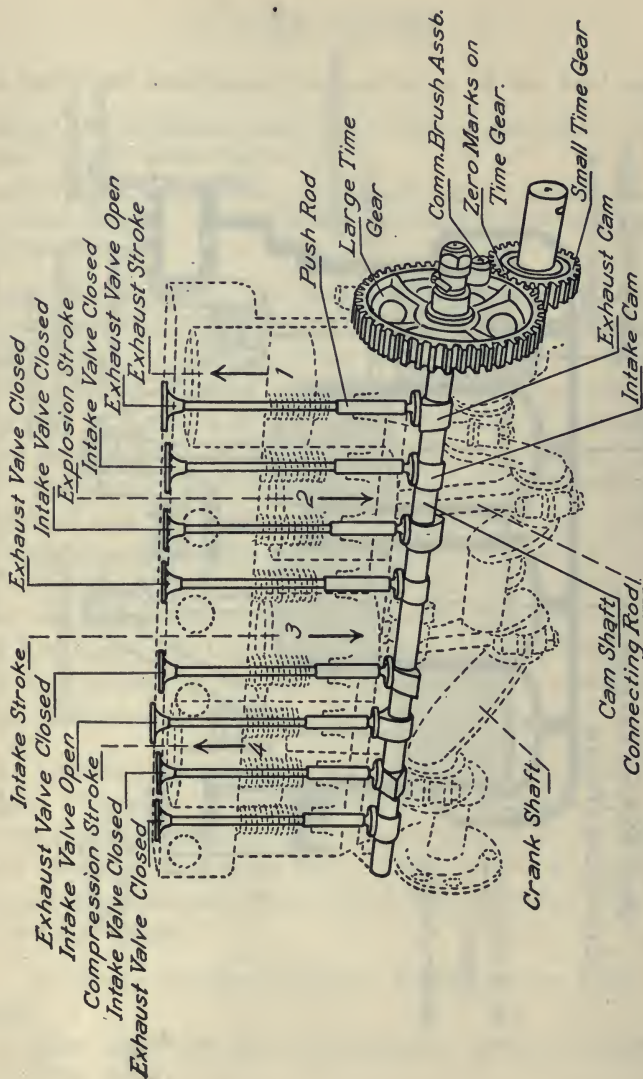 Intake Stroke
Exhaust Valve Closed
Intake Valve Open
Compression Stroke
Intake Valve Closed
Exhaust Valve Closed
Exhaust Valve Closed
Intake Valve Closed
Explosion Stroke
Intake Valve Closed
Exhaust Valve Open
Exhaust Stroke
Push Rod
Large Time
Gear
Comm. Brush Assb.
Zero Marks on
Time Gear.
Small Time Gear
4
3
2
1
Exhaust Cam
Intake Cam
Cam Shaft
Connecting Rod
Crank Shaft